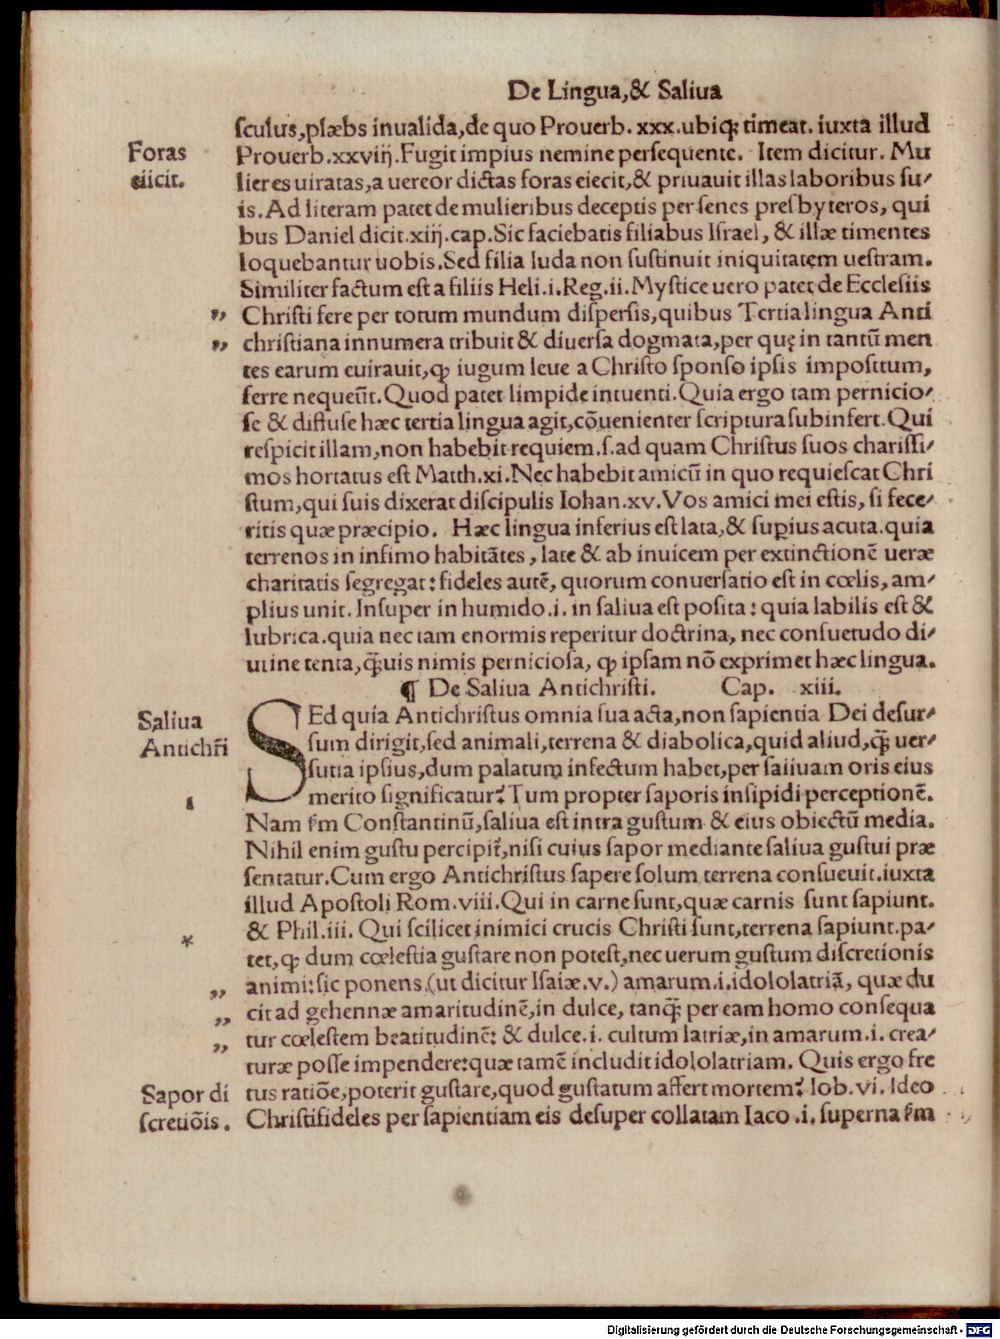 De Lingua, & Saliua
ſculus, plæbs inualida, de quo Prouerb. xxx. ubiq; timeat. iuxta illud
Foras Prouerb. xxviij. Fugit impius nemine perſequente. Item dicitur. Mu
eiicit. lieres uiratas, a uereor dictas foras eiecit, & priuauit illas laboribus ſu⸗
is. Ad literam patet de mulieribus deceptis per ſenes preſbyteros, qui
bus Daniel dicit. xiij. cap. Sic faciebatis filiabus Iſrael, & illæ timentes
loquebantur uobis. Sed filia Iuda non ſuſtinuit iniquitatem ueſtram.
Similiter factum eſt a filiis Heli. i. Reg. ii. Myſtice uero patet de Eccleſiis
„ Chriſti fere per totum mundum diſperſis, quibus Tertia lingua Anti
„ chriſtiana innumera tribuit & diuerſa dogmata, per quę in tantū men
tes earum euirauit, ꝙ iugum leue a Chriſto ſponſo ipſis impoſitum,
ferre nequeūt. Quod patet limpide intuenti. Quia ergo tam pernicio⸗
ſe & diffuſe hæc tertia lingua agit, cōuenienter ſcriptura ſubinfert. Qui
reſpicit illam, non habebit requiem. ſ. ad quam Chriſtus ſuos chariſſi⸗
mos hortatus eſt Matth. xi. Nec habebit amicū in quo requieſcat Chri
ſtum, qui ſuis dixerat diſcipulis Iohan. xv. Vos amici mei eſtis, ſi fece⸗
ritis quæ præcipio. Hæc lingua inferius eſt lata, & ſuꝑius acuta. quia
terrenos in infimo habitātes, late & ab inuicem per extinctionē ueræ
charitatis ſegregat: fideles autē, quorum conuerſatio eſt in cœlis, am⸗
plius unit. Inſuper in humido. i. in ſaliua eſt poſita: quia labilis eſt &
lubrica. quia nec tam enormis reperitur doctrina, nec conſuetudo di⸗
utine tenta, ꝗ̄uis nimis pernicioſa, ꝙ ipſam nō exprimet hæc lingua.
¶ De Saliua Antichriſti. Cap. xiii.
Saliua SEd quia Antichriſtus omnia ſua acta, non ſapientia Dei deſur⸗
Antichr̄i ſum dirigit, ſed animali, terrena & diabolica, quid aliud, ꝗ̄ uer⸗
ſutia ipſius, dum palatum infectum habet, per ſaliuam oris eius
ı merito ſignificatur? Tum propter ſaporis inſipidi perceptionē.
Nam ſ̄m Conſtantinū, ſaliua eſt intra guſtum & eius obiectū media.
Nihil enim guſtu percipit̄, niſi cuius ſapor mediante ſaliua guſtui præ
ſentatur. Cum ergo Antichriſtus ſapere ſolum terrena conſueuit. iuxta
illud Apoſtoli Rom. viii. Qui in carne ſunt, quæ carnis ſunt ſapiunt.
* & Phil. iii. Qui ſcilicet inimici crucis Chriſti ſunt, terrena ſapiunt. pa⸗
tet, ꝙ dum cœleſtia guſtare non poteſt, nec uerum guſtum diſcretionis
„ animi: ſic ponens (ut dicitur Iſaiæ. v.) amarum. i. idololatriā, quæ du
„ cit ad gehennæ amaritudinē, in dulce, tanꝗ̄ per eam homo conſequa
„ tur cœleſtem beatitudinē: & dulce. i. cultum latriæ, in amarum. i. crea⸗
turæ poſſe impendere: quæ tamē includit idololatriam. Quis ergo fre
Sapor di tus ratiōe, poterit guſtare, quod guſtatum affert mortem? Iob. vi. Ideo
ſcretiōis. Chriſtifideles per ſapientiam eis deſuper collatam Iaco. i. ſuperna ſ̄m
Digitalisierung gefördert durch die Deutsche Forschungsgemeinschaft - DFG